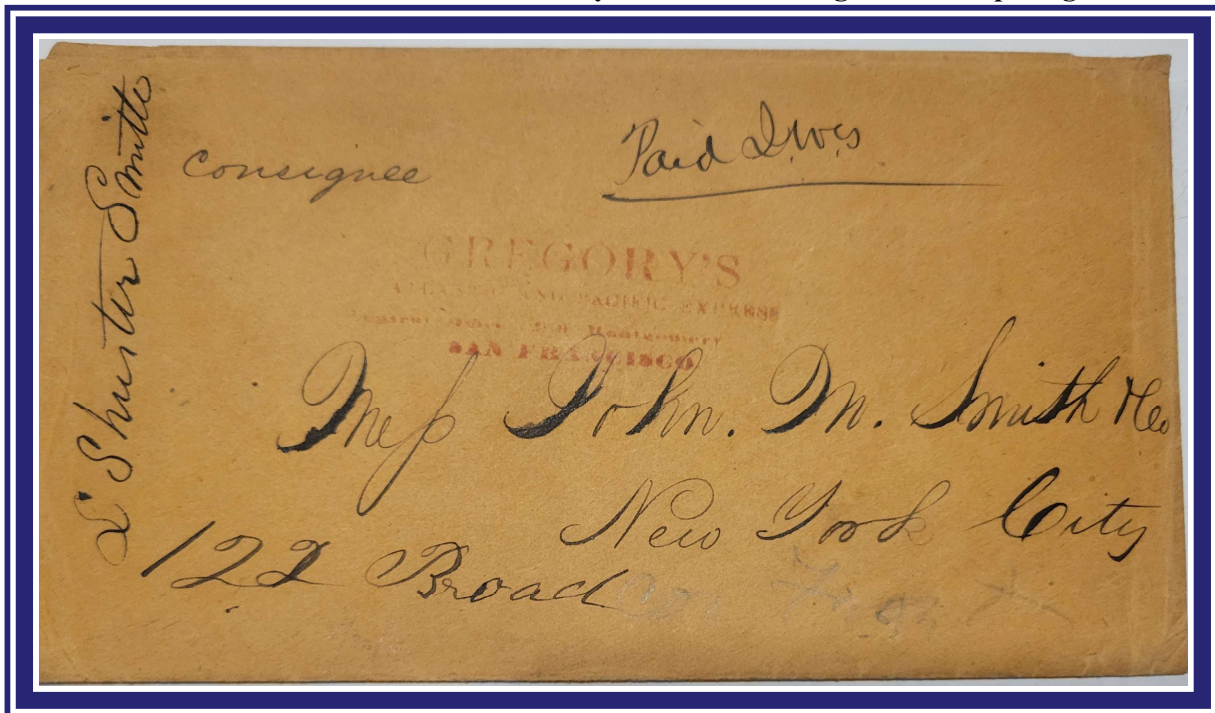 L Shuster Smith
consignee
Paid
GREGORY'S
AND PACIFIC EXPRESS
Montgomery
SAN FRANCISCO
Mess John. M. Smith & Co
New York City
122 Broad